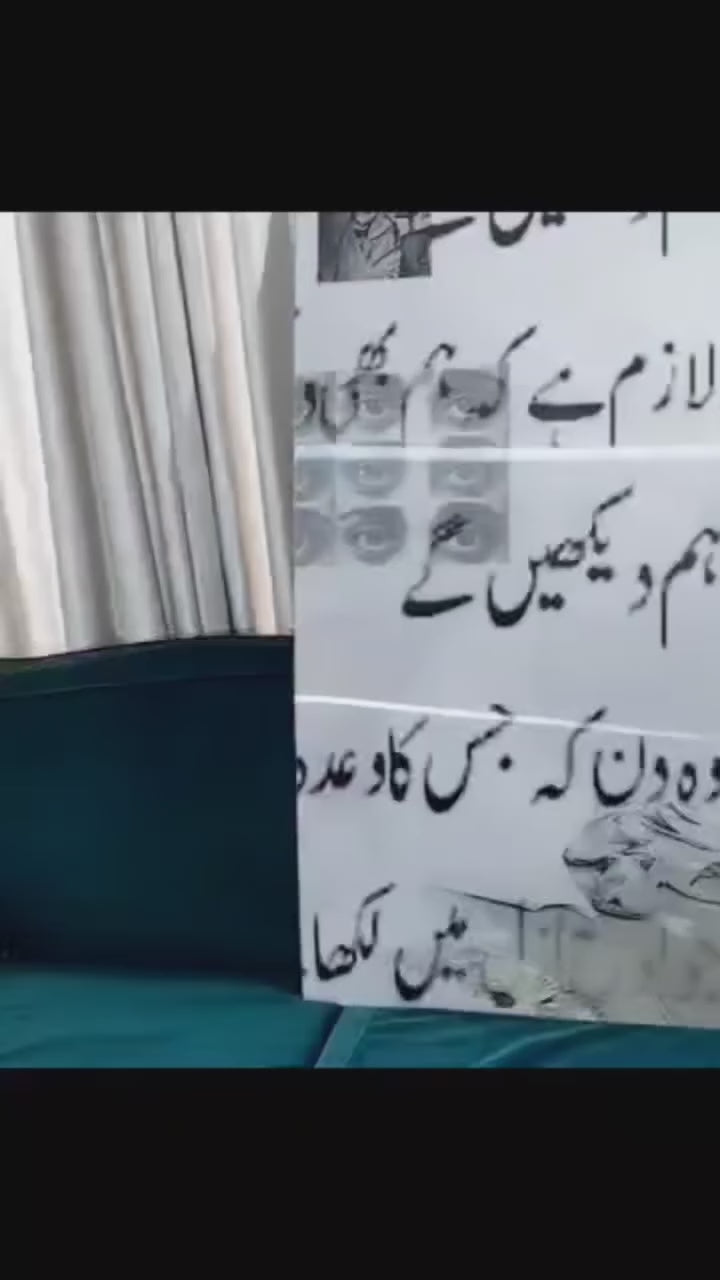 لازم ہے کہ ہم بھی
ہم دیکھیں گے
وہ دن کہ جس کا وعدہ
میں لکھا